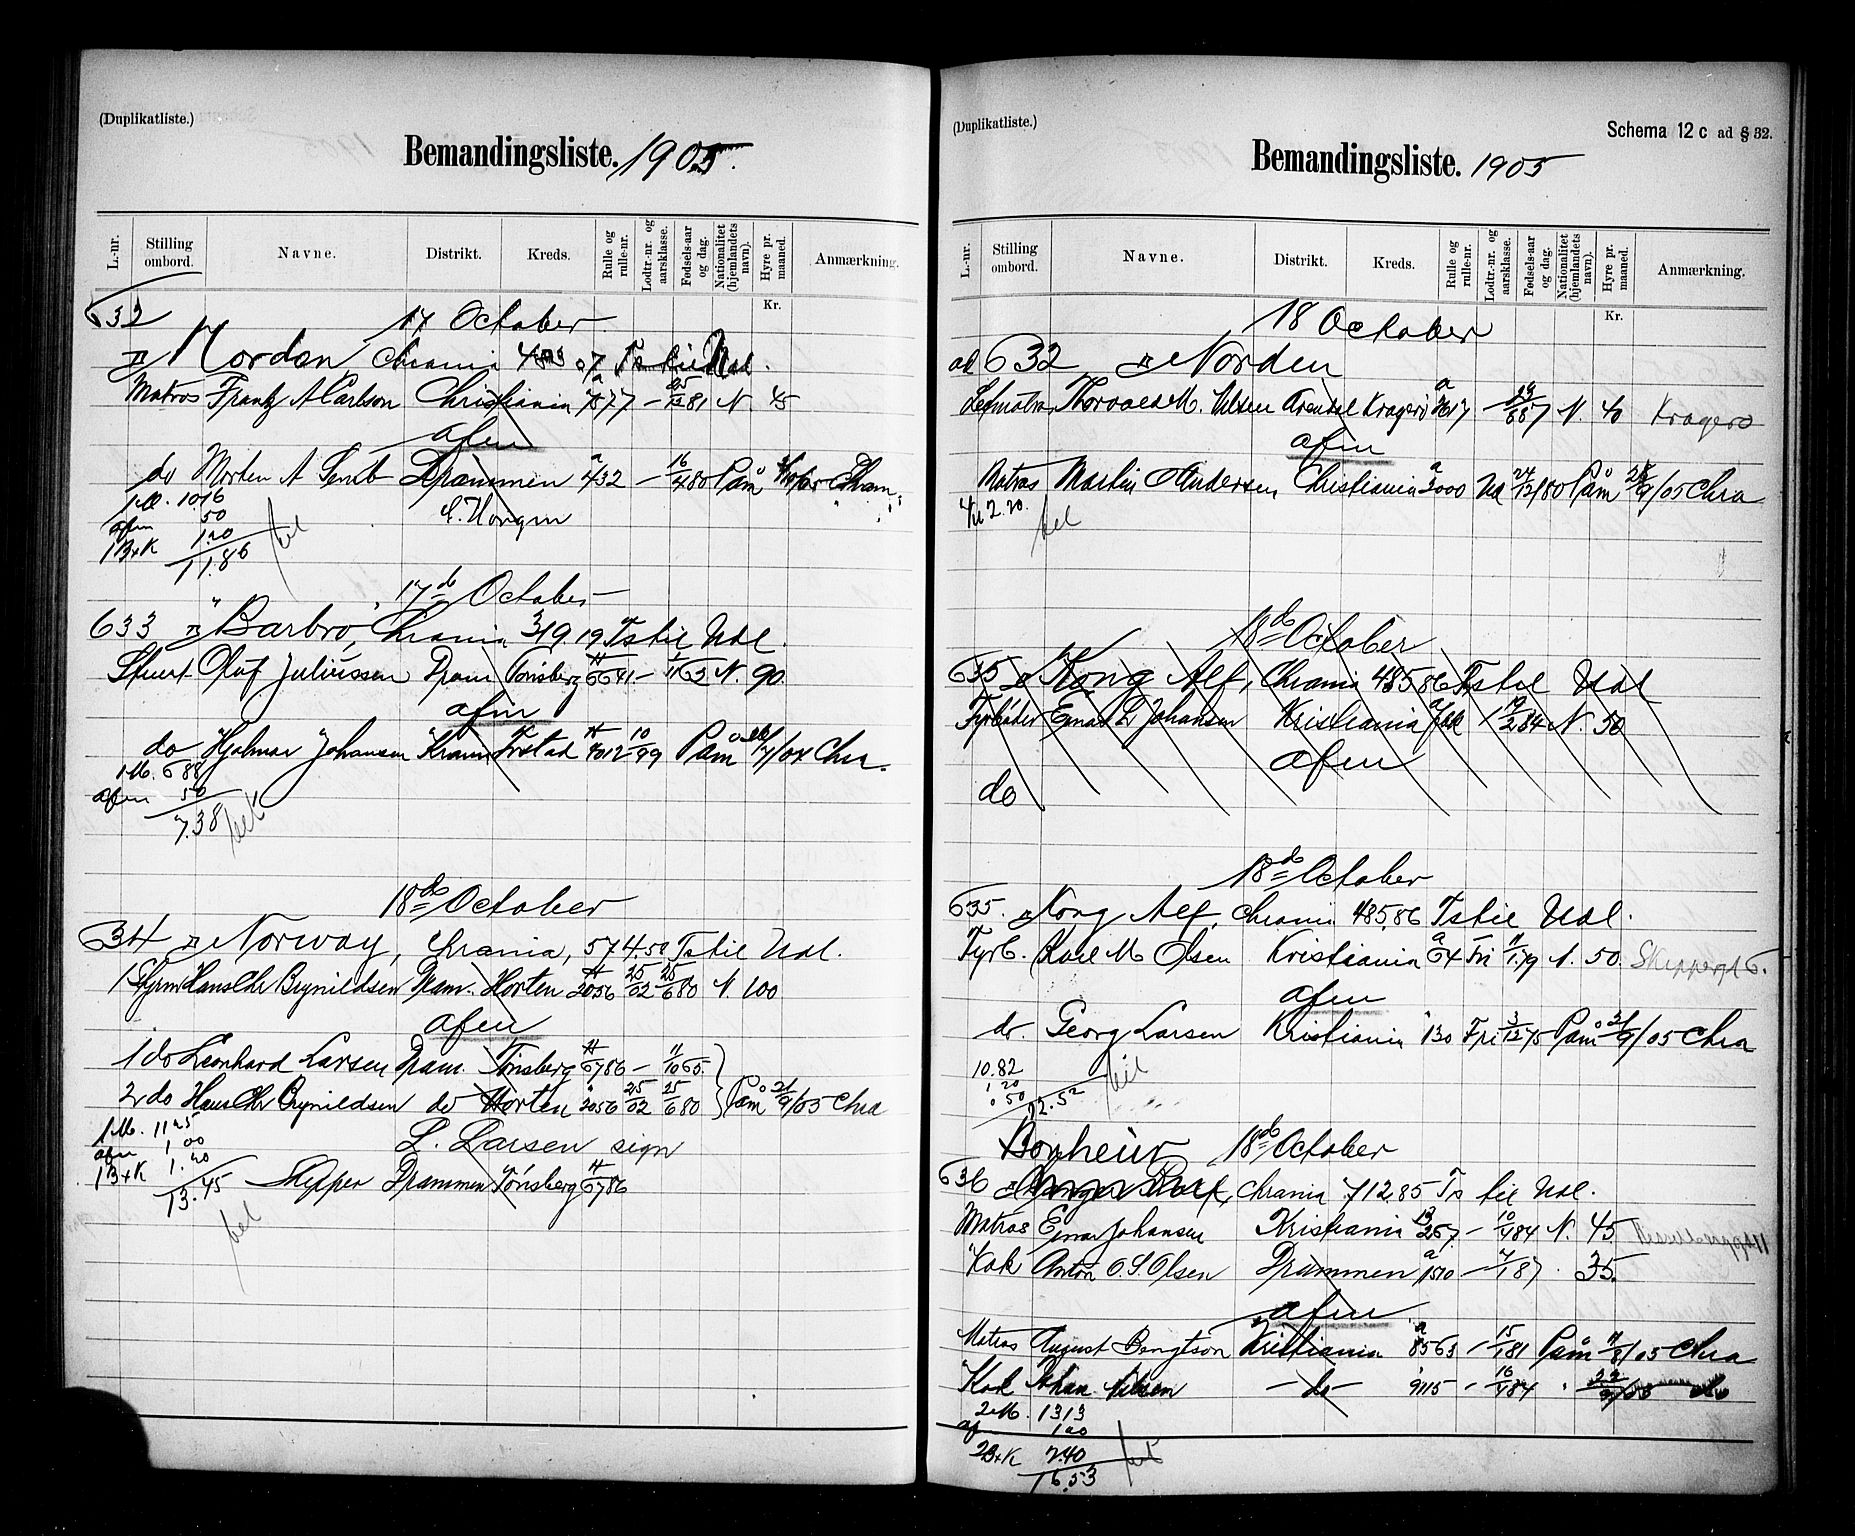 (Duplikatliste.)
Bemandingsliste. 1905.
L.-nr.
Stilling ombord.
Navne.
Distrikt.
Kreds.
Rulle og rulle-nr.
Lodtr.-nr. og aarsklasse.
Fødsels-aar og dag.
Nationalitet (hjemlandets navn).
Hyre pr. maaned.
Anmærkning.
Kr.
632 17 October
Norden, Chrania
Matros Frantz A Carlson Christiania 7877 – 81 N. 45
afm
do Morten A Drammen a 432 – 16/4 80 Påm
1 M. 10.16
afm 50
1 B+K 1.20
11.86
bet
17de October
633 "Barbro", Chrania 319.19 Ts til Udl.
Stuert Oluf Juliussen Dram Tønsberg 6641 – N. 90
afm
do Hjalmar Johansen 4012 10/99 Påm Chra.
1 M. 6 88
afm 50
7.38
bet
18de October
634 Norway, Chrania, 574.50 Ts til Udl.
1 Styrm Hans Chr Brynildsen Dram. Horten 2056 25/02 25/6 80 N. 100
afm
1 do Leonhard Larsen Dram. Tønsberg 6786 – 11/10 65.
2 do Hans Chr Brynildsen do Horten 2056 25/02 25/6 80 Påm 21/9/05 Chra
1 M. 11 25
L. Larsen sign
afm 1 00
1 B+K 1.20
13.45
Skipper Drammen Tønsberg 6786
bet
(Duplikatliste.)
Schema 12 c ad § 32.
Bemandingsliste. 1905
L.-nr.
Stilling ombord.
Navne.
Distrikt.
Kreds.
Rulle og rulle-nr.
Lodtr.-nr. og aarsklasse.
Fødsels-aar og dag.
Nationalitet (hjemlandets navn).
Hyre pr. maaned.
Anmærkning.
Kr.
18 October
ad 632 Norden
Letmatros Thorvald M. Nilsen Arendal Kragerø N. 40 Kragerø
afm
Matros Martin O Andersen Christiania a 3000 Ud 24/12/80 Påm 9/05 Chra
bet
18de October
635 Kong Alf, Chrania 485,86 Ts til Udl
Fyrbøder Einar L Johansen Kristiania N. 50
afm
do
18de October
635. Kong Alf, Chrania 485,86 Ts til Udl.
Fyrb. Karl M Olsen Kristiania a 64 Fri 11/1 79 N. 50. Skippergt 6.
afm
do Georg Larsen Kristiania 130 Fri 3/12 75 Påm 9/05 Chra
10.82
1 20
0 50
12.52
bet
Bonheur 18de October
636 Chrania 712,85 Ts til Udl.
Matros Einar Johansen Kristiania 257. – 10/4 84 N. 45.
Kok Anton O. S. Olsen Drammen a 1510 – 87. 35.
afm
Matros August Bengtson Kristiania a 8563 – 15/1 81 Påm 11/8/05 Chra
Kok Johan Nilsen – do – 9115 – 16/4 84
2 M. 13 13
afm 1 00
2 B+K 2.40
16.53
bet